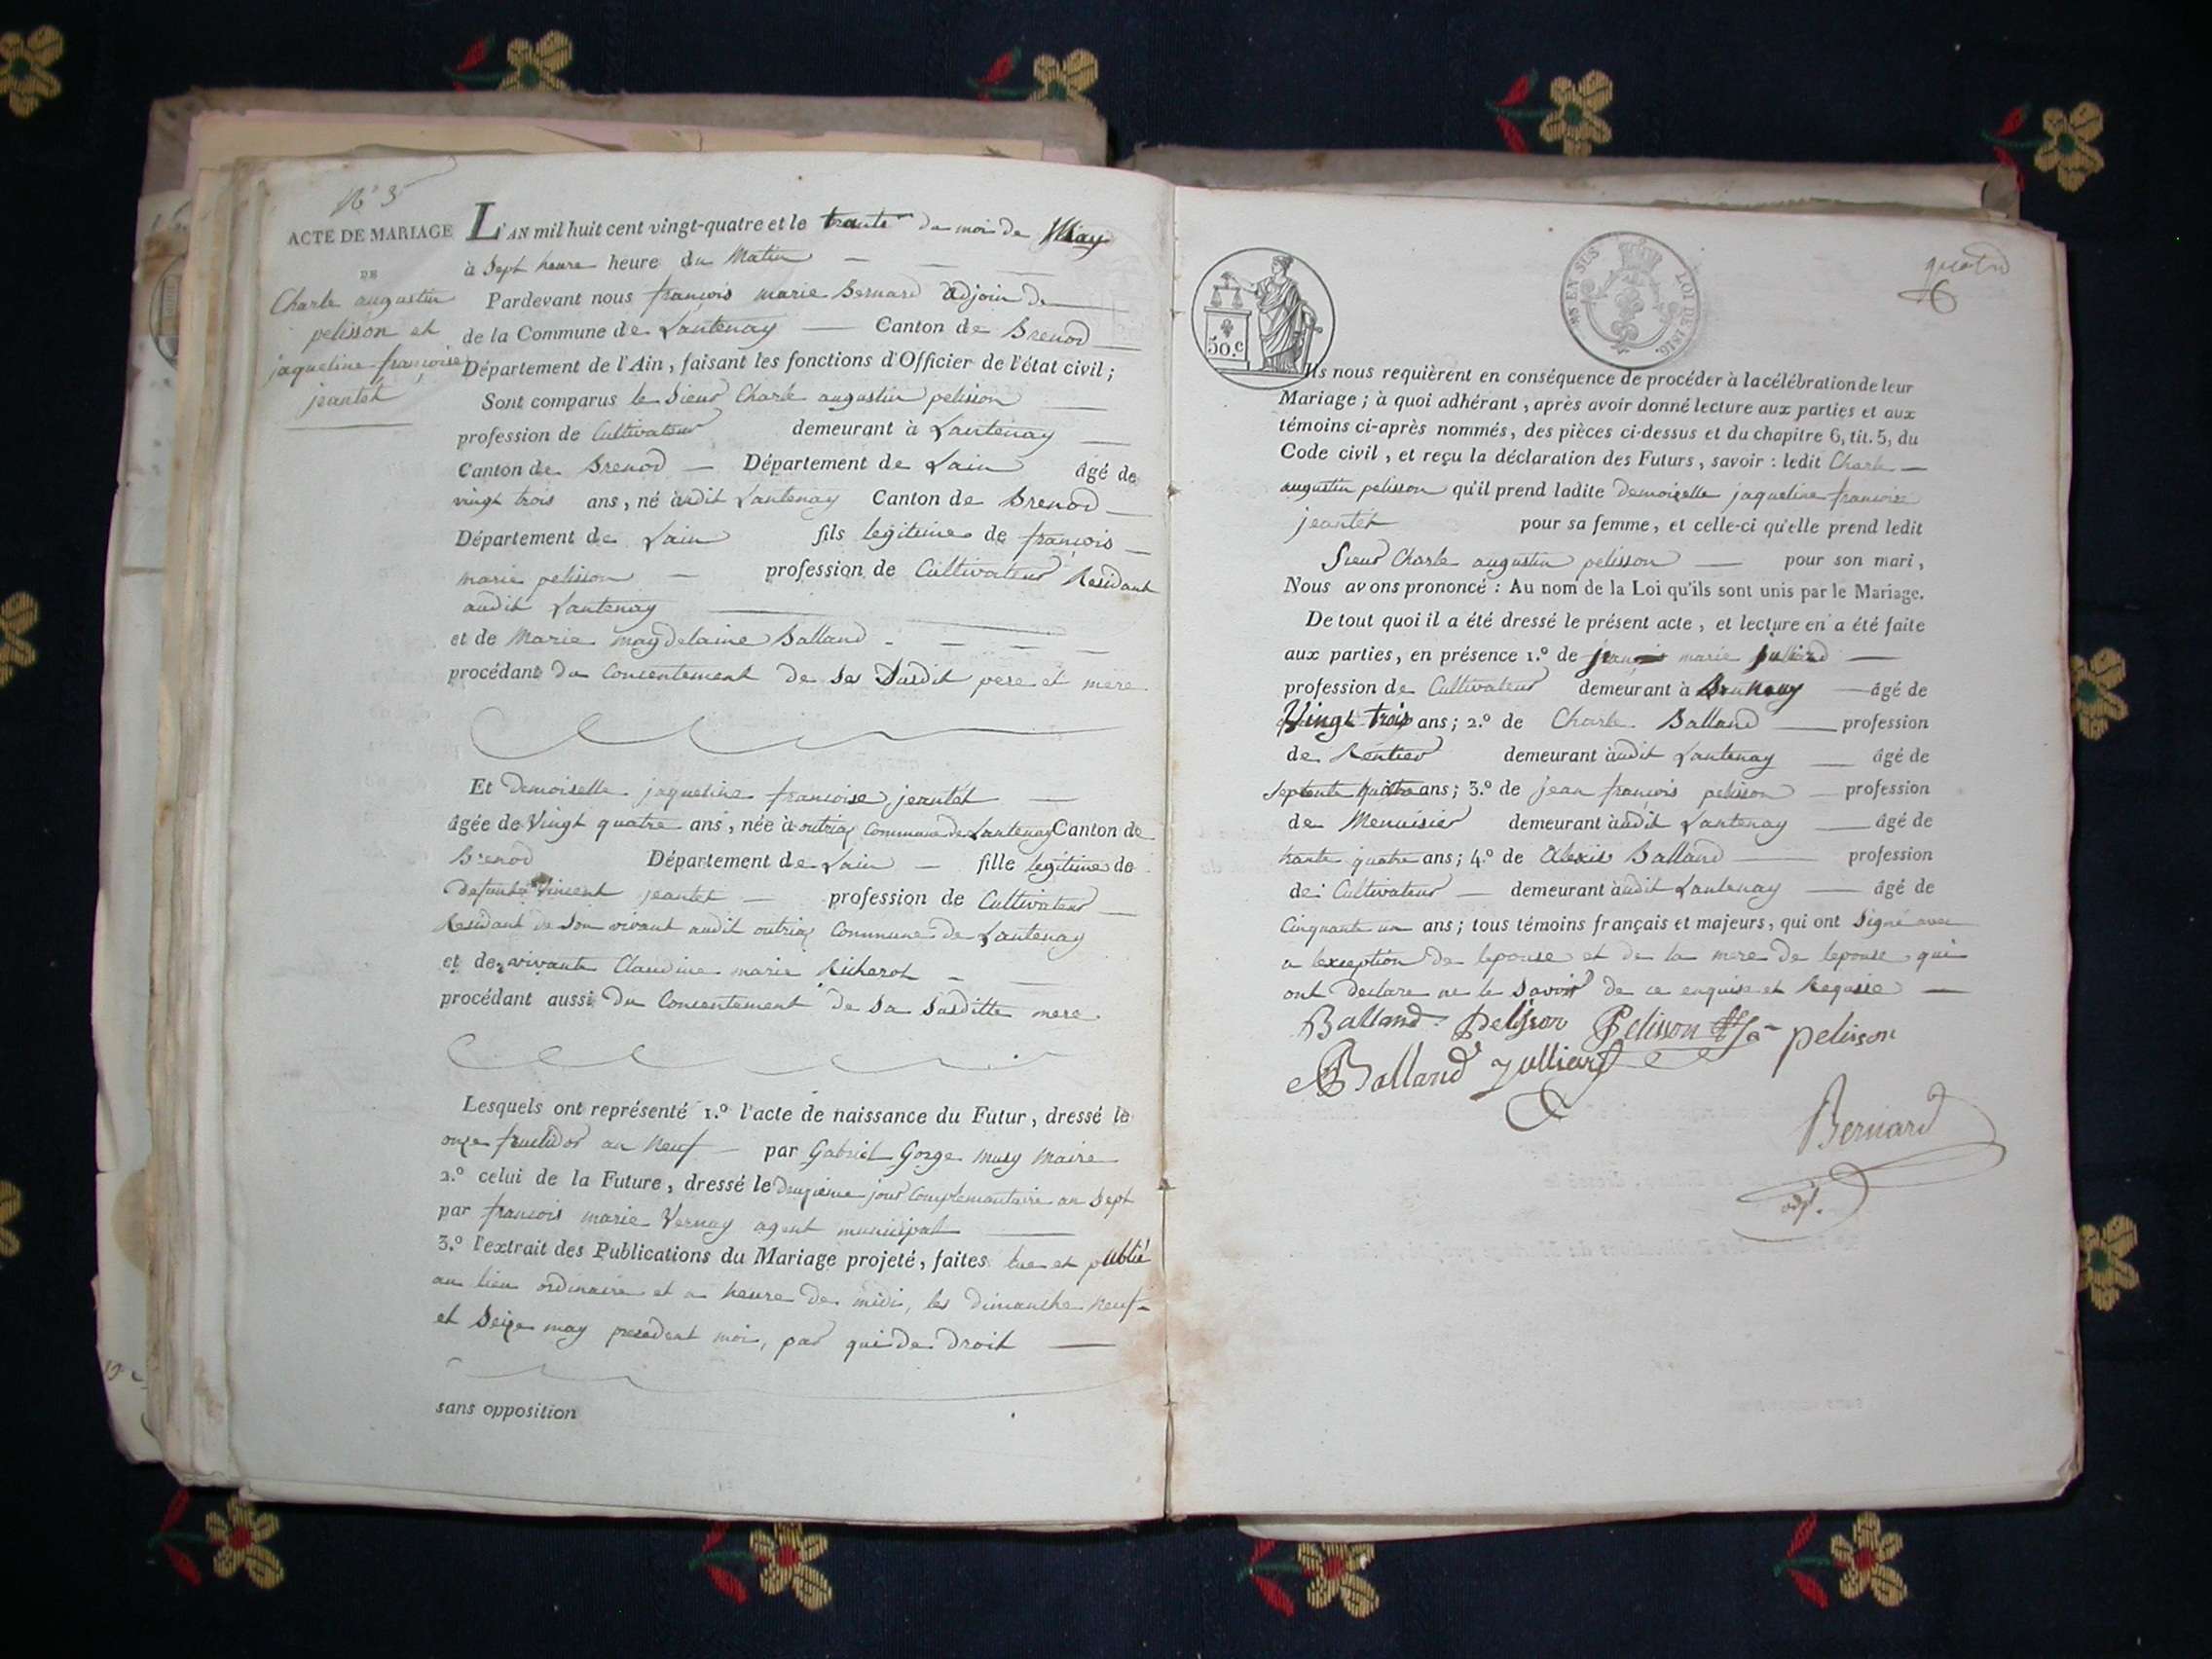 N° 3
ACTE DE MARIAGE
DE
Charle augustin
pelisson et
jaqueline françoise
jeantet
L'AN mil huit cent vingt-quatre et le trante du moi de May
à Sept heure heure du Matin
Pardevant nous françois marie Bernard adjoin de
de la Commune de Lantenay Canton de Brenod
Département de l'Ain, faisant les fonctions d'Officier de l'état civil;
Sont comparus le Sieur Charle augustin pelisson
profession de Cultivateur demeurant à Lantenay
Canton de Brenod Département de Lain âgé de
vingt trois ans, né audit Lantenay Canton de Brenod
Département de Lain fils legitime de françois
marie pelisson profession de Cultivateur Residant
audit Lantenay
et de Marie magdelaine Balland
procédant du Consentement de Ses Susdit pere et mere
Et Demoiselle jaqueline françoise jeantet
âgée de Vingt quatre ans, née à outriaz Commune de Lantenay Canton de
Brenod Département de Lain fille legitime de
defunt Vincent jeantet profession de Cultivateur
Residant de Son vivant audit outriaz Commune de Lantenay
et de vivante Claudine marie Richerot
procédant aussi du Consentement de Sa Susditte mere
Lesquels ont représenté 1.º l'acte de naissance du Futur, dressé le
onze fructidor an neuf par Gabriel Gorge Musy Maire
2.º celui de la Future, dressé le Deuxieme jour Complementaire an Sept
par francois marie Vernay agent municipal
3.º l'extrait des Publications du Mariage projeté, faites lue et publié
au lieu ordinaire et a heure de midi, les dimanche neuf
et Seize may presedent moi, par qui de droit
sans opposition
50.c
MS EN SUS
LOI DE 1816.
Ils nous requièrent en conséquence de procéder à la célébration de leur
Mariage; à quoi adhérant, après avoir donné lecture aux parties et aux
témoins ci-après nommés, des pièces ci-dessus et du chapitre 6, tit. 5, du
Code civil, et reçu la déclaration des Futurs, savoir : ledit Charle
augustin pelisson qu'il prend ladite demoiselle jaqueline francoise
jeantet pour sa femme, et celle-ci qu'elle prend ledit
Sieur Charle augustin pelisson pour son mari,
Nous avons prononcé : Au nom de la Loi qu'ils sont unis par le Mariage.
De tout quoi il a été dressé le présent acte, et lecture en a été faite
aux parties, en présence 1.º de françois marie julliard
profession de Cultivateur demeurant à âgé de
Vingt trois ans; 2.º de Charle Balland profession
de Rentier demeurant audit Lantenay âgé de
Septente quatre ans; 3.º de jean françois pelisson profession
de Menuisier demeurant audit Lantenay âgé de
trante quatre ans; 4.º de Alexis Balland profession
de Cultivateur demeurant audit Lantenay âgé de
Cinquante un ans; tous témoins français et majeurs, qui ont Signé avec
a lexception de lepouse et de la mere de lepouse qui
ont declare ne le Savoir de ce enquise et Requise
Balland Pelisson Pelisson pelisson
Balland Julliard
Bernard
adj.